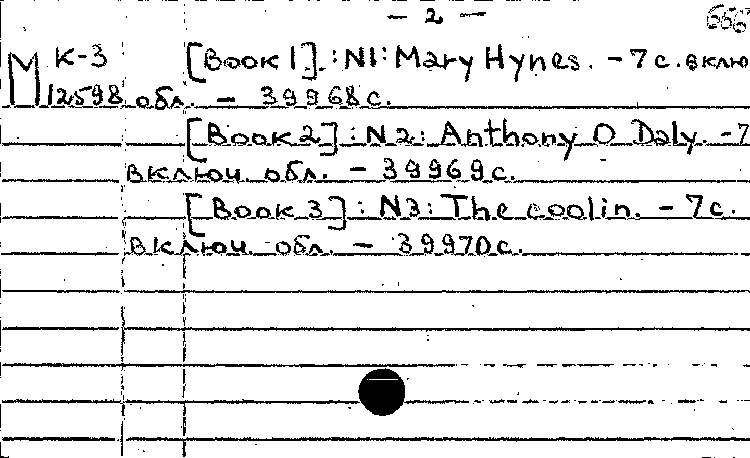 — 2 —
М К-3 [Book 1]. : N1: Mary Hynes. - 7с. вклю
12598 обл. - 39968с.
[Book 2] : N2: Anthony O Daly. - 7
включ. обл. - 39969с.
[Book 3] : N3: The coolin. - 7с.
включ. обл. - 39970с.